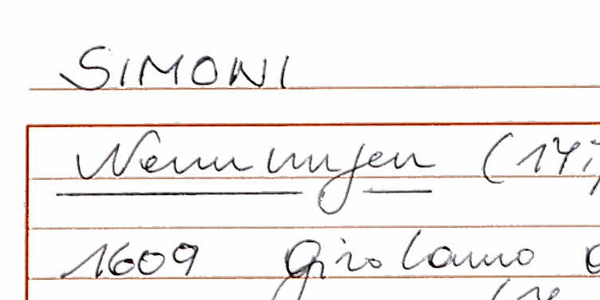 SIMONI
Nennungen (14
1609 Girolamo